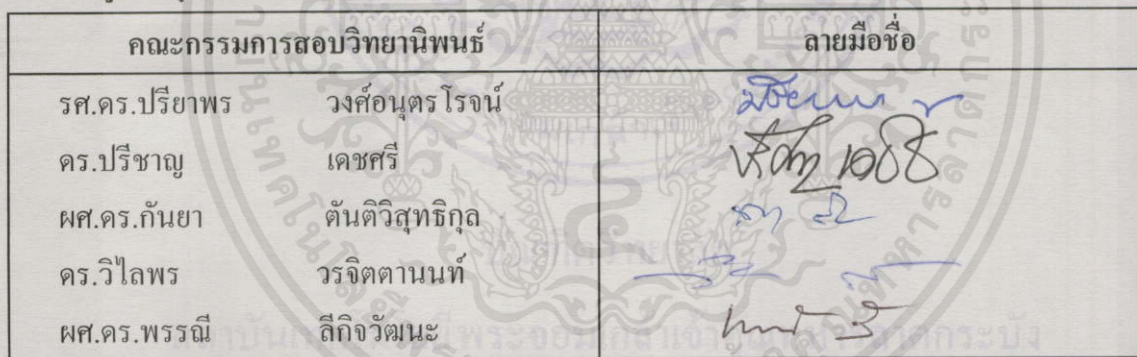 คณะกรรมการสอบวิทยานิพนธ์ ลายมือชื่อ
รศ.ดร.ปรียาพร วงศ์อนุตรโรจน์
ดร.ปรีชาญ เดชศรี
ผศ.ดร.กันยา ตันติวิสุทธิกุล
ดร.วิไลพร วรจิตตานนท์
ผศ.ดร.พรรณี ลีกิจวัฒนะ